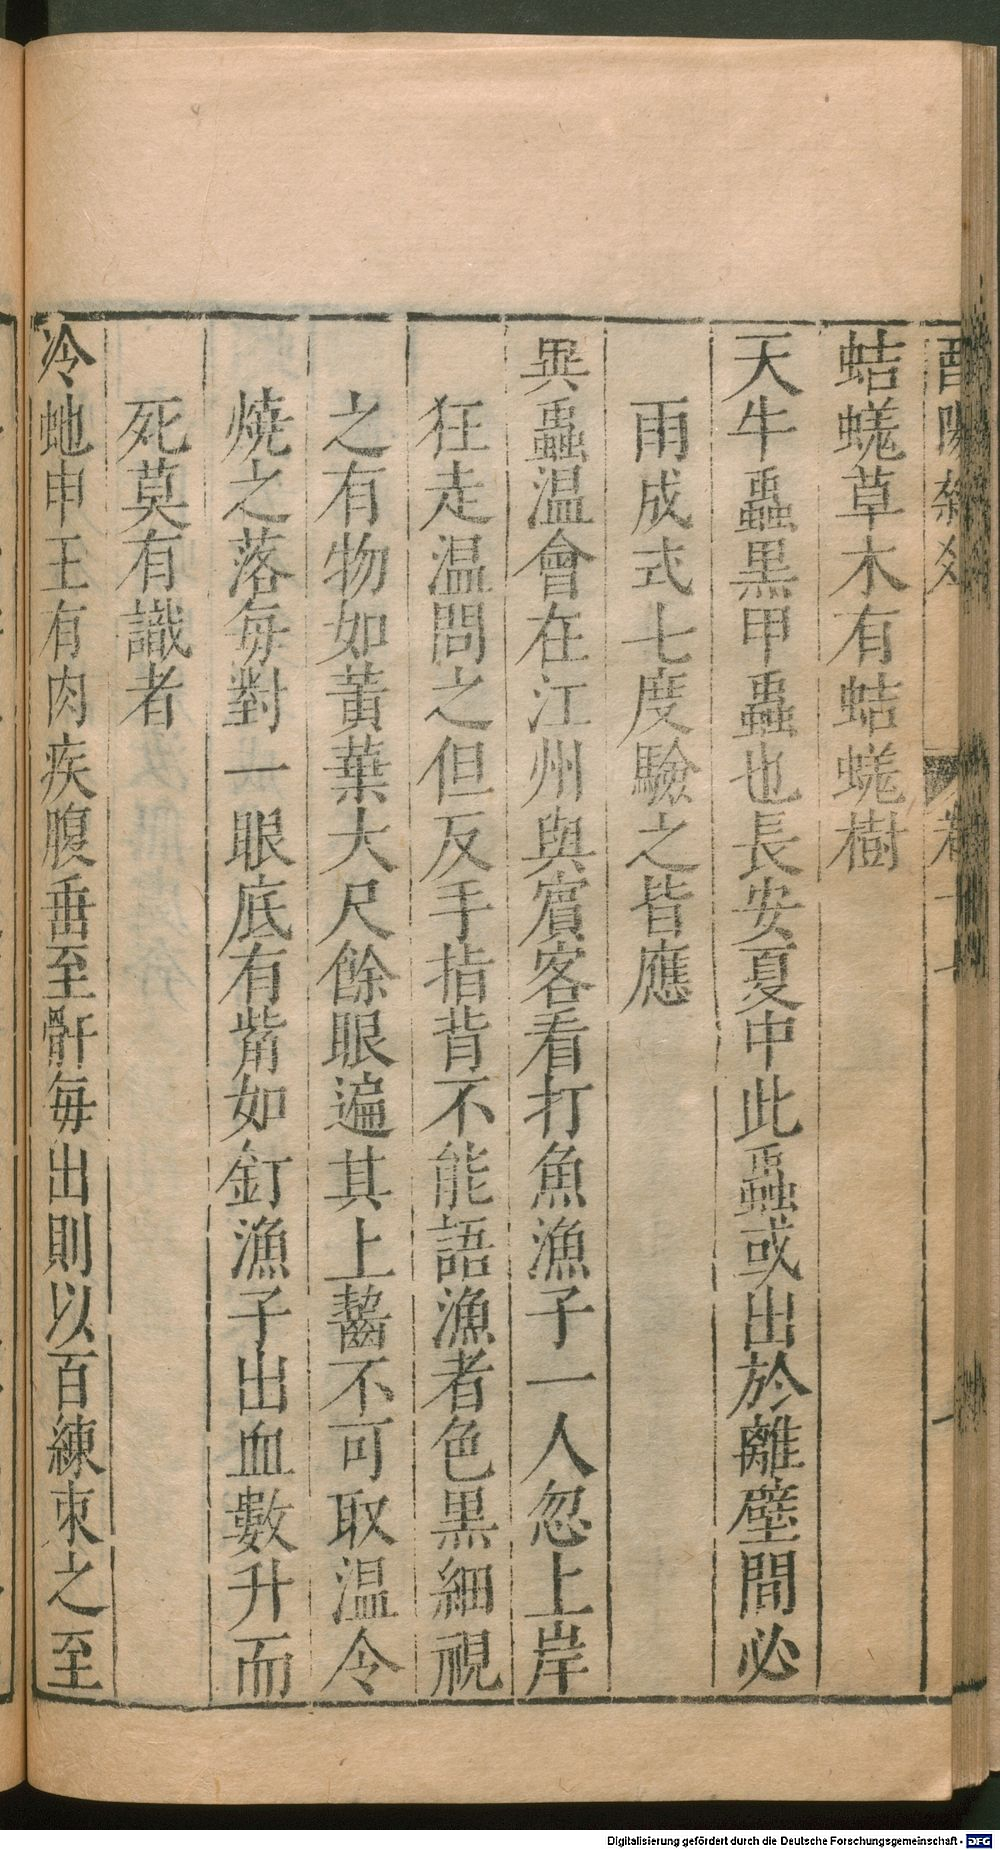 蛣蜣草木有蛣蜣樹
天牛蟲黑甲蟲也長安夏中此蟲或出於離壁間必
雨成式七度驗之皆應
異蟲温會在江州與賓客看打魚漁子一人忽上岸
狂走温問之但反手指背不能語漁者色黑細視
之有物如黃葉大尺餘眼遍其上齧不可取温令
燒之落每對一眼底有觜如釘漁子出血數升而
死莫有識者
冷蛇申王有肉疾腹垂至骭每出則以百練束之至
Digitalisierung gefördert durch die Deutsche Forschungsgemeinschaft - DFG